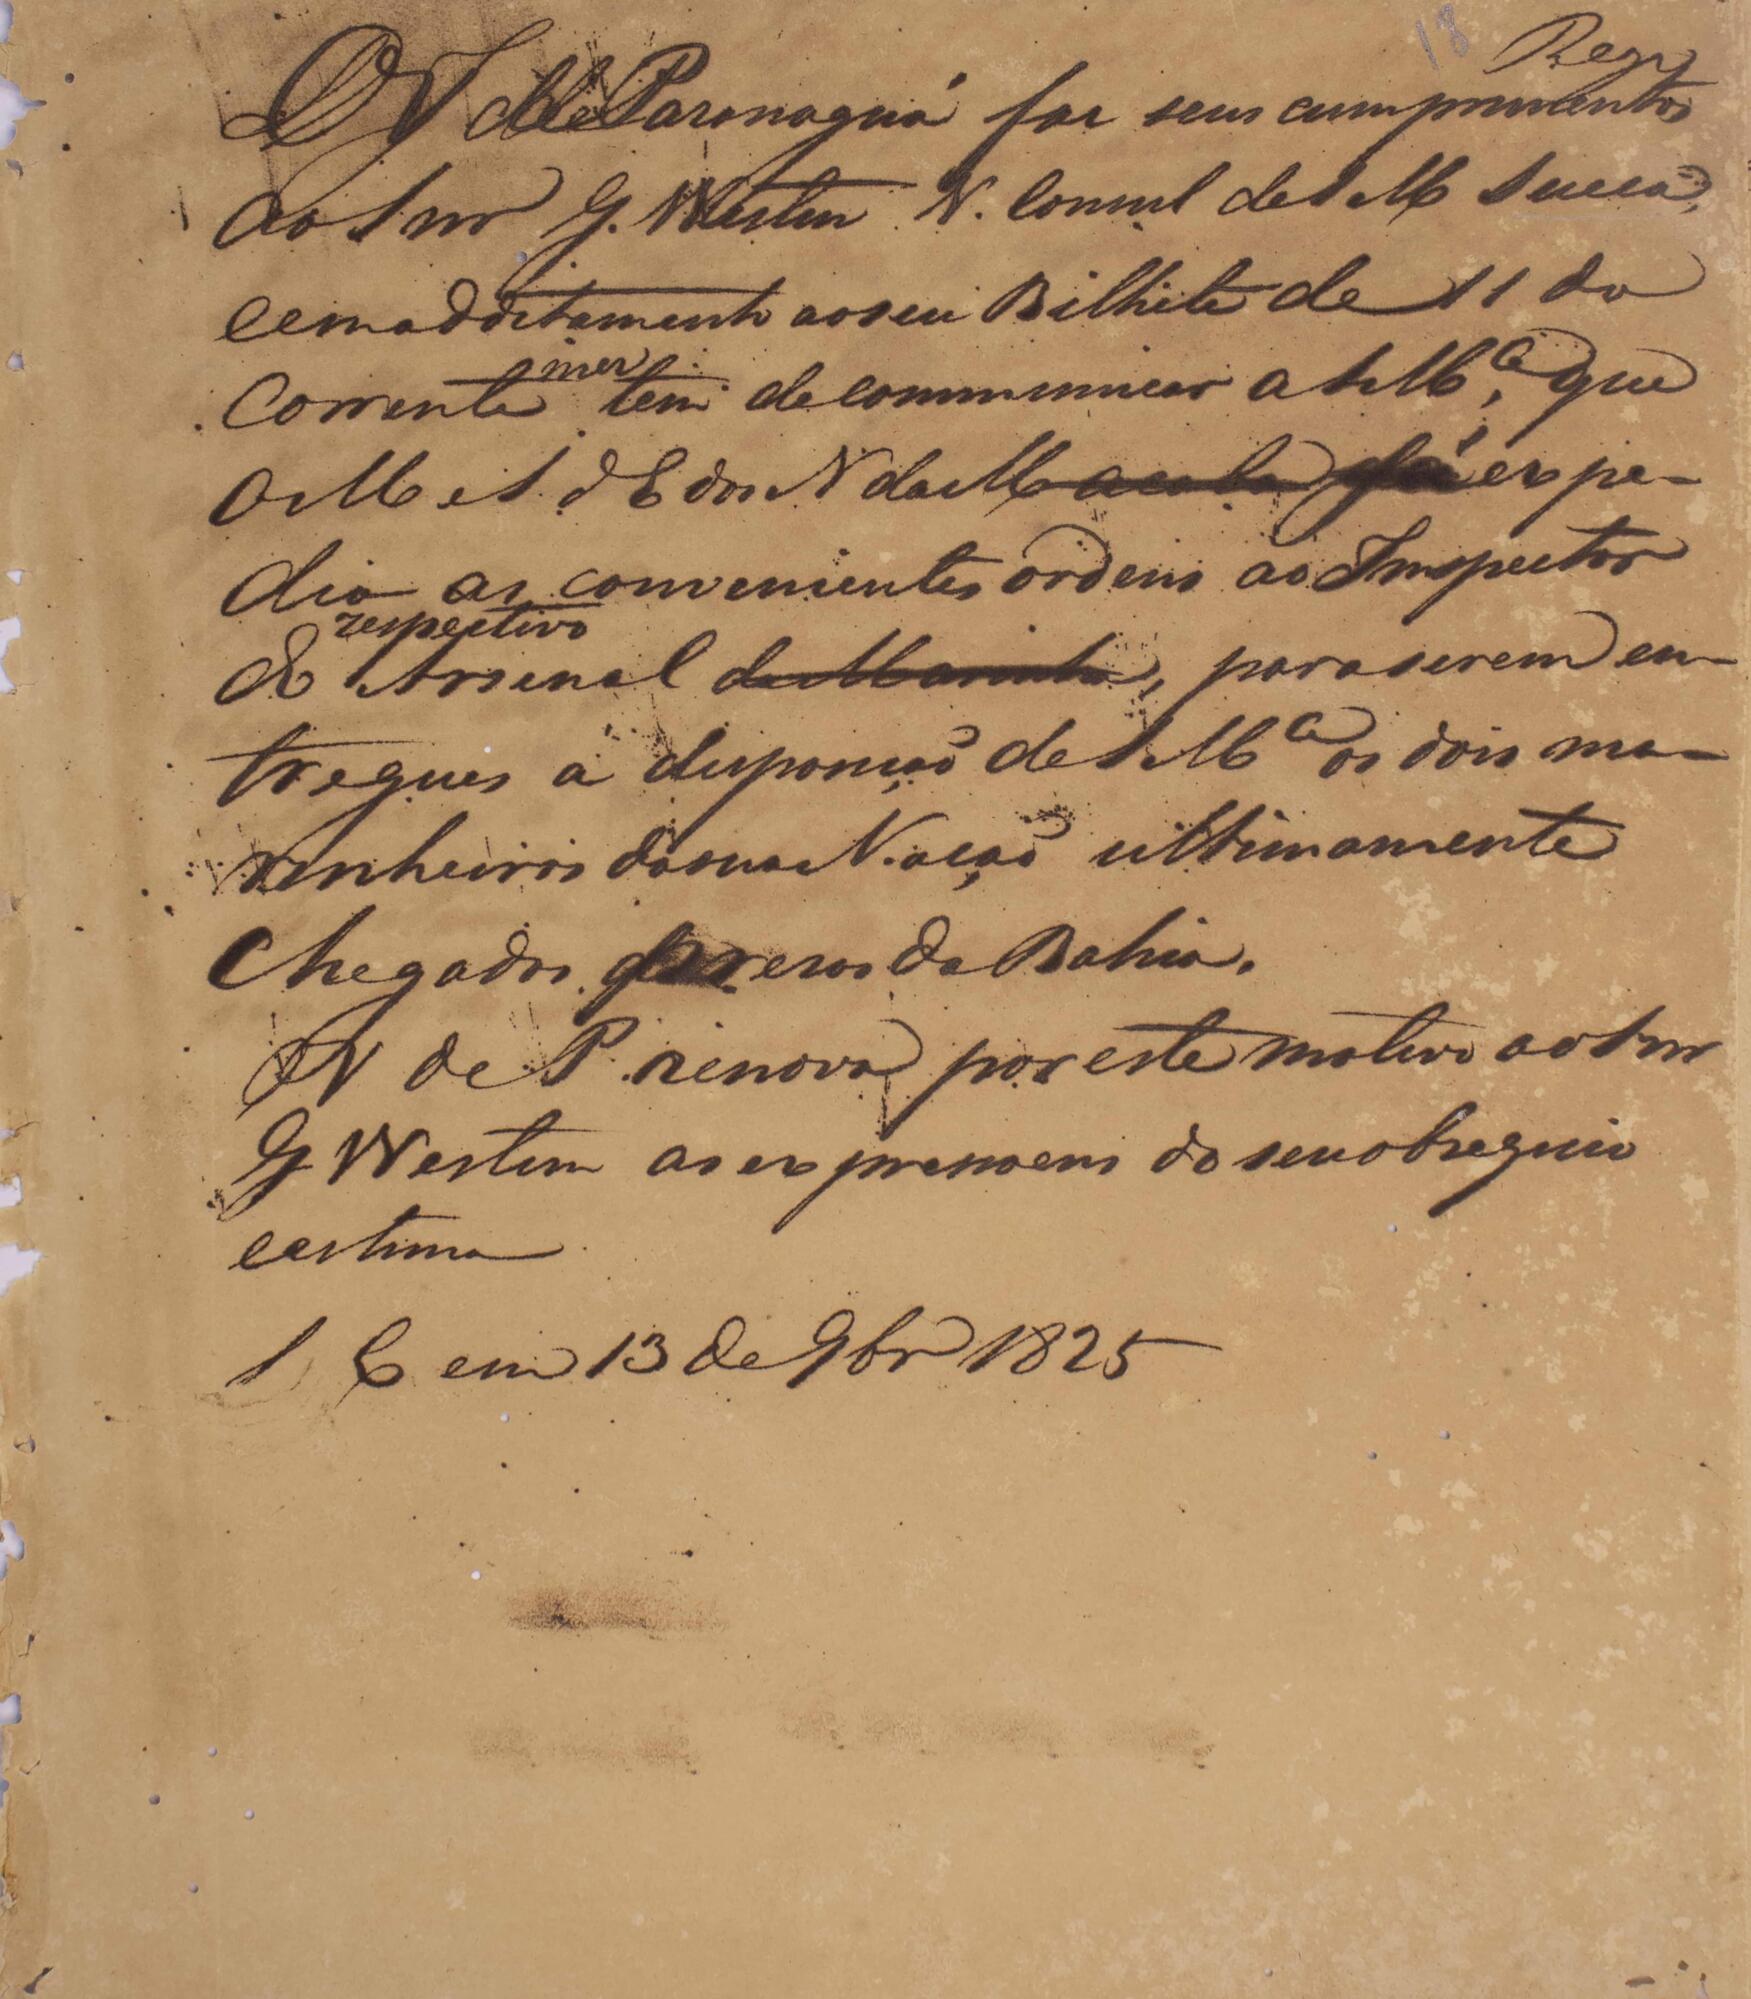 18 Regr
O V de Paranaguá faz seus cumprimentos
ao Snr G. Westin V. Consul de S M Sueca,
e em additamento ao seu Bilhete de 11 do
Corrente mez tem de communicar a S. M.ce, que
o M e S. d'E dos N da M acaba já expe-
dio as convenientes ordens ao Inspector
do respectivo Arsenal da Marinha, para serem en-
tregues à disposição de S. M.ce os dois ma-
rinheiros da sua Nação ultimamente
Chegados prezos da Bahia.
O V de P. renova por este motivo ao Snr
G Westin as expressoens do seu obsequio
e estima
S C em 13 de 9br 1825